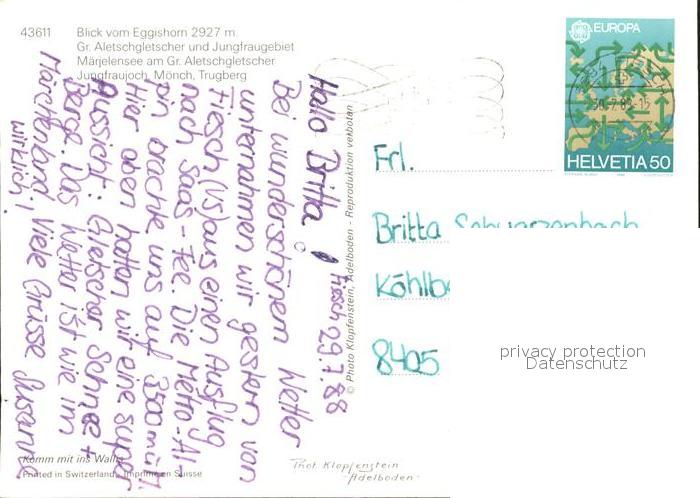 43611
Blick vom Eggishorn 2927 m.
Gr. Aletschgletscher und Jungfraugebiet
Märjelensee am Gr. Aletschgletscher
Jungfraujoch, Mönch, Trugberg
EUROPA
HELVETIA 50
Fiesch 29.7.88
Hallo Britta!
Bei wunderschönen Wetter
unternahmen wir gestern von
Fiesch (VS) aus einen Ausflug
nach Saas-Fee. Die Metro-Al-
pin brachte uns auf 3500 m ü.M.
Hier oben hatten wir eine super
Aussicht: Gletscher Schnee +
Berge. Das Wetter ist wie im
Märchenland Viele Grüsse Susanne
wirklich!
© Photo Klopfenstein, Adelboden - Reproduktion verboten
Frl.
Britta Schwarzenbach
8405
privacy protection
Datenschutz
Komm mit ins Wallis
Printed in Switzerland - Imprimé en Suisse
Phot. Klopfenstein
-Adelboden-